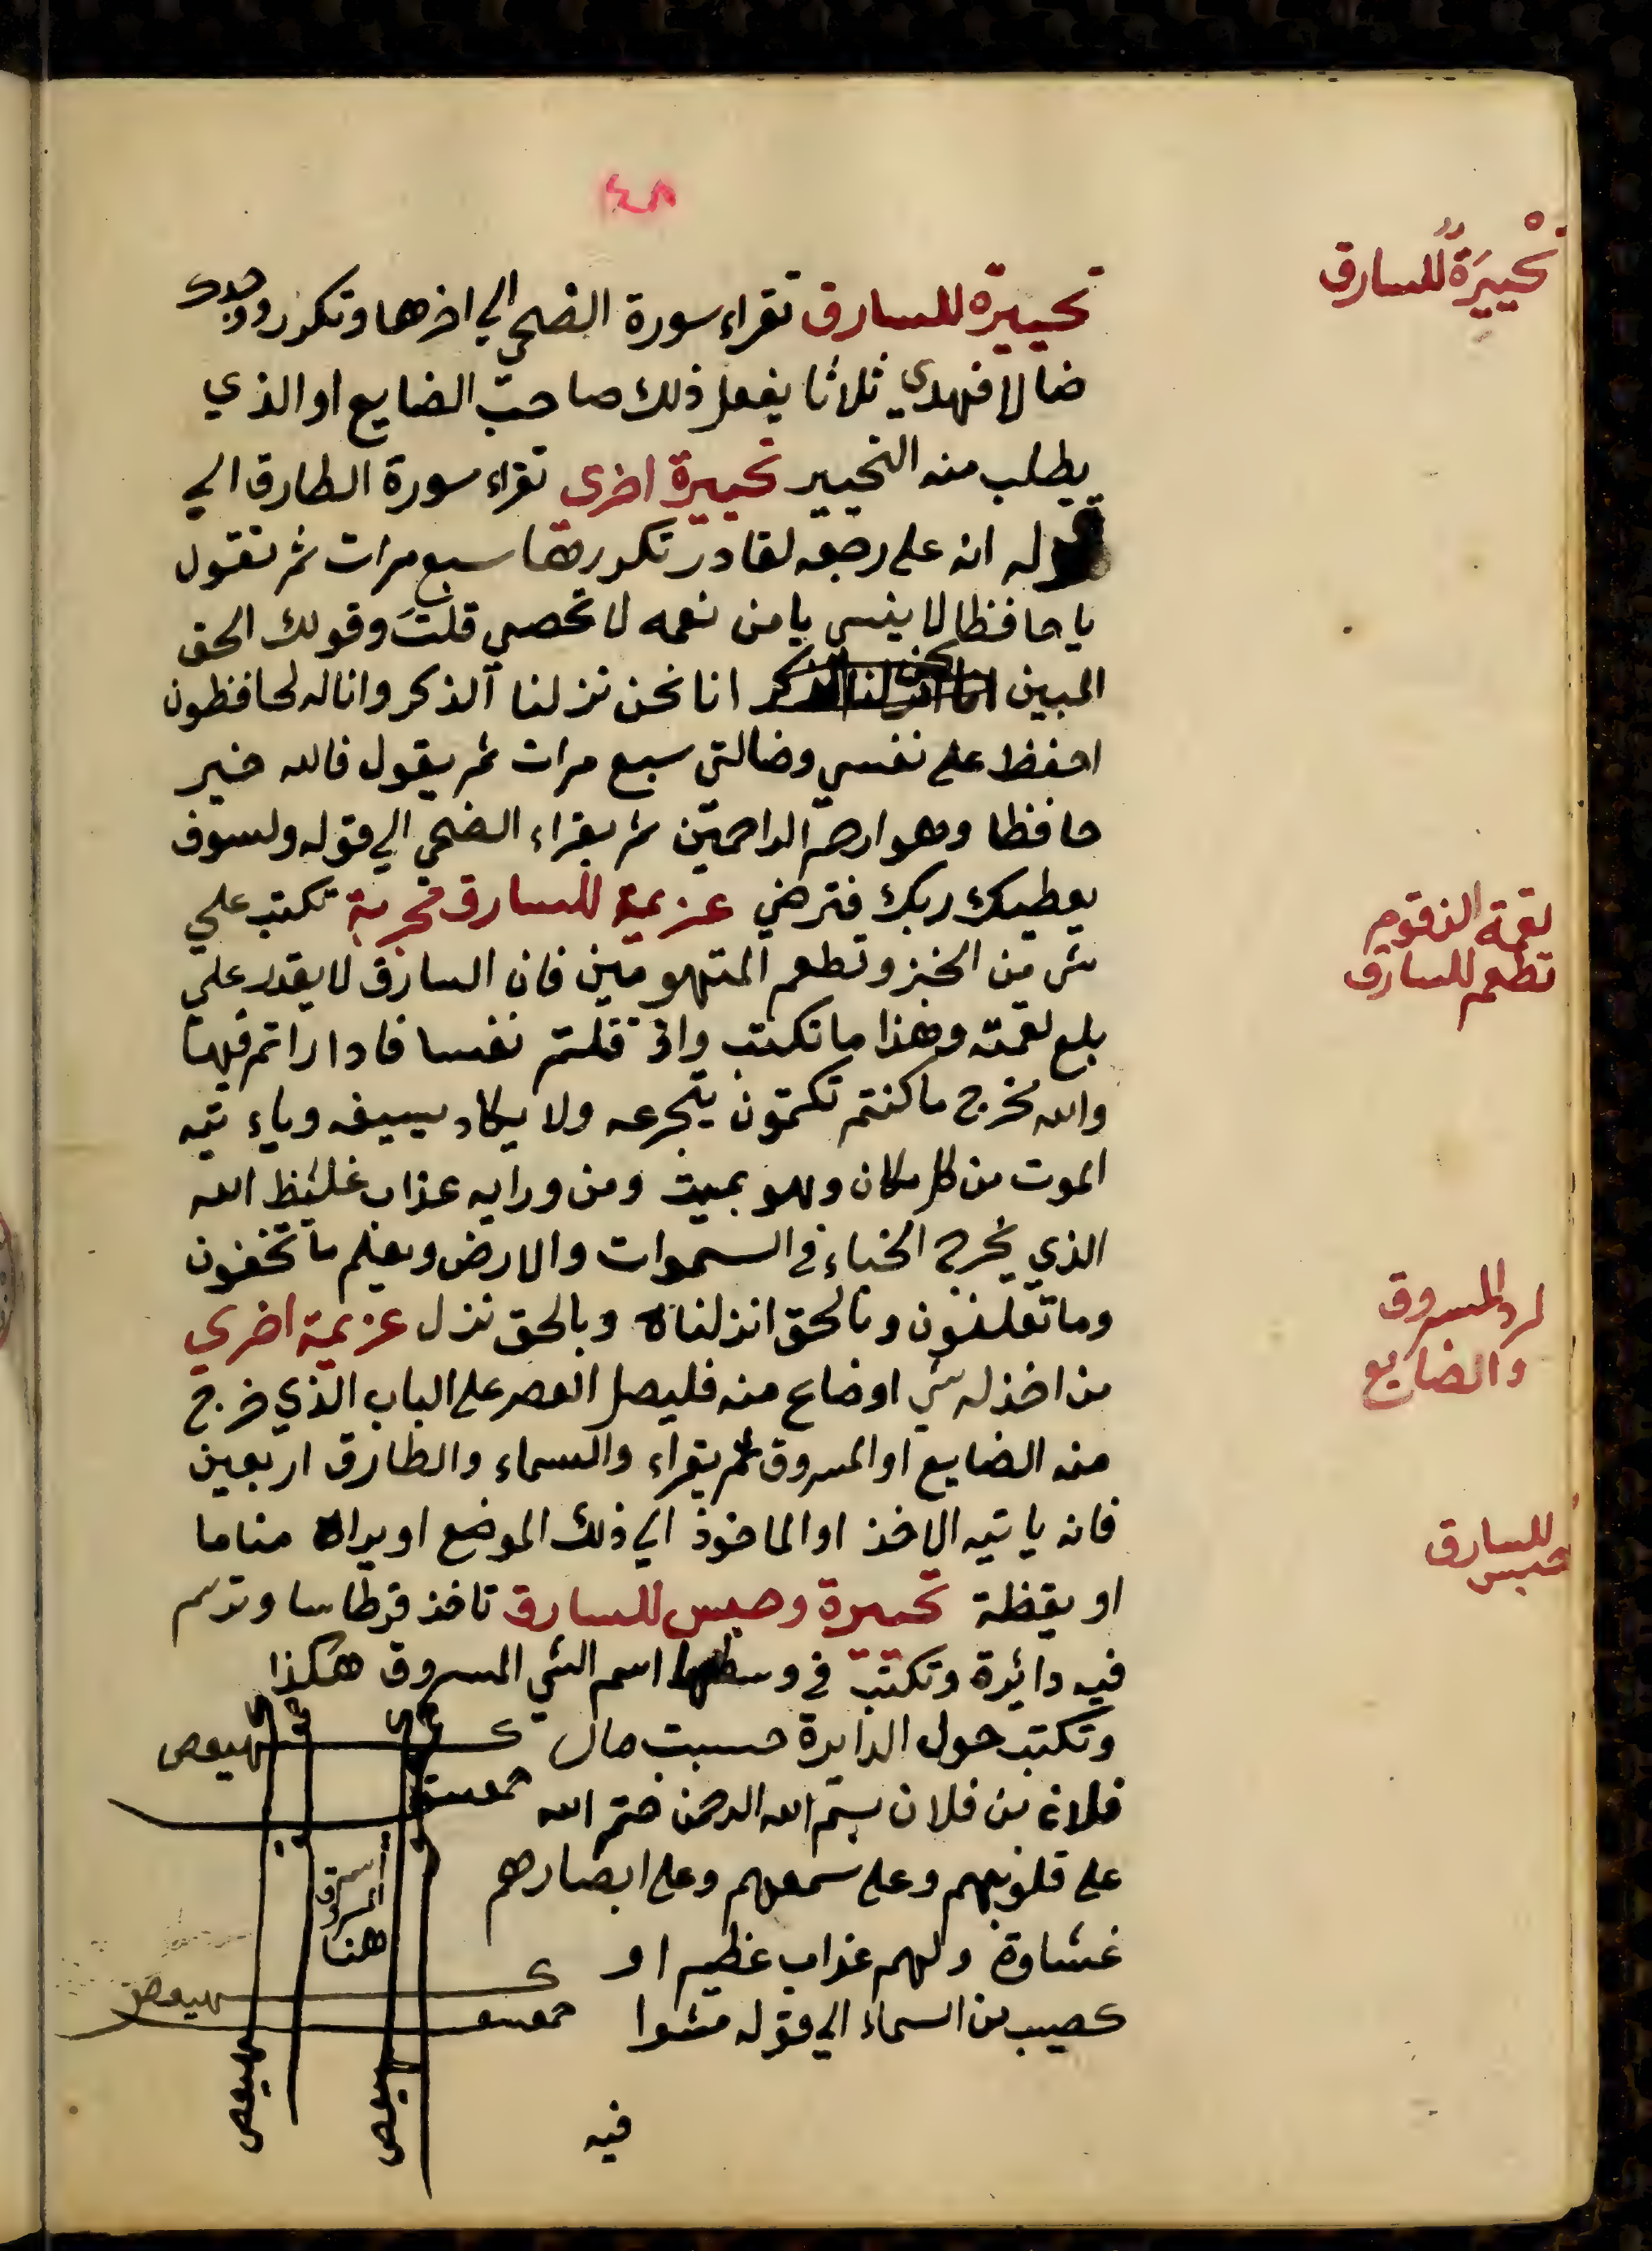 ٤٨
تحييرة للسارق
تحييرة للسارق تقراء سورة الضحي الي اخرها وتكرر ووجدك
ضالا فهدي ثلاثا يفعل ذلك صاحب الضايع او الذي
يطلب منه التحيير تحييرة اخري تقراء سورة الطارق الي
قوله انه علي رجعه لقادر تكررها سبع مرات ثم تقول
يا حافظا لا ينسي يا من نعمه لا تحصي قلت وقولك الحق
المبين انا نحن نزلنا الذكر وانا له لحافظون
احفظ علي نفسي وضالتي سبع مرات ثم يقول فالله خير
حافظا وهو ارحم الراحمين ثم يقراء الضحي الي قوله ولسوف
يعطيك ربك فترضي عزيمة للسارق مجربة تكتب علي
لقمة الزقوم
تطعم للسارق
شي من الخبز وتطعم المتهومين فان السارق لا يقدر علي
بلع لقمته وهذا ما تكتب واذ قلتم نفسا فاداراتم فيها
والله مخرج ما كنتم تكتمون يتجرعه ولا يكاد يسيغه وياء تيه
الموت من كل مكان وهو بميت ومن ورايه عذاب غليظ الله
الذي يخرج الخباء في السموات والارض ويعلم ما تخفون
وما تعلنون وبالحق انزلناه وبالحق نزل عزيمة اخري
لرد المسروق
والضايع
من اخذ له شي او ضاع منه فليصل العصر علي الباب الذي خرج
منه الضايع او المسروق ثم يقراء والسماء والطارق اربعين
فانه ياتيه الاخذ او الماخوذ الي ذلك الموضع او يراه مناما
للسارق
حبس
او يقظة تحييرة وحبس للسارق تاخذ قرطاسا وترسم
فيه دائرة وتكتب في وسطها اسم الشي المسروق هكذا
وتكتب حول الدايرة حسبت مال
فلانه بن فلان بسم الله الرحمن ختم الله
علي قلوبهم وعلي سمعهم وعلي ابصارهم
غشاوة ولهم عذاب عظيم او
كصيب من السماء الي قوله مشوا
فيه
كهيعص
حمعسق
اسم
المسروق
هنا
كهيعص
حمعسق
كهيعص
كهيعص